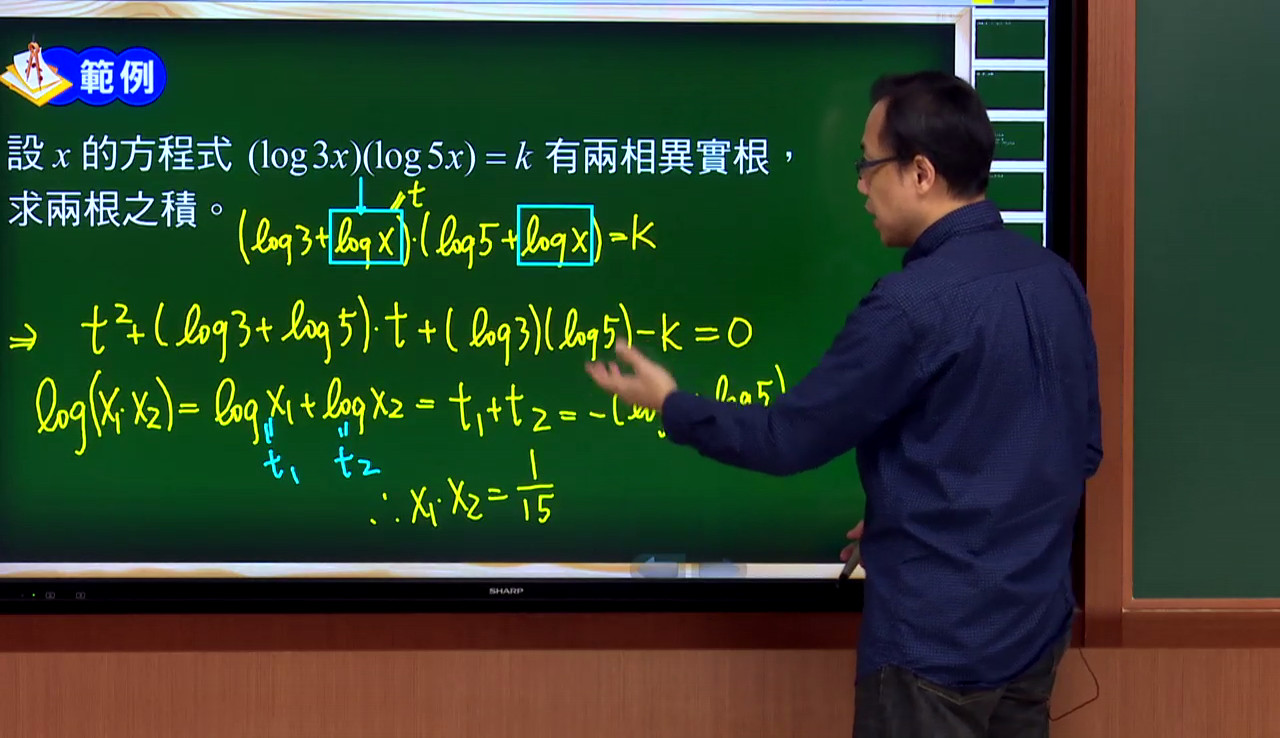 範例
設 x 的方程式 (log3x)(log5x) = k 有兩相異實根，
求兩根之積。
t
(log3+log x)·(log5+log x)=k
⇒ t²+(log3+log5)·t+(log3)(log5)-k=0
log(x₁·x₂)=log x₁+log x₂=t₁+t₂=-(log5)
t₁ t₂
∴x₁·x₂=1/15
SHARP